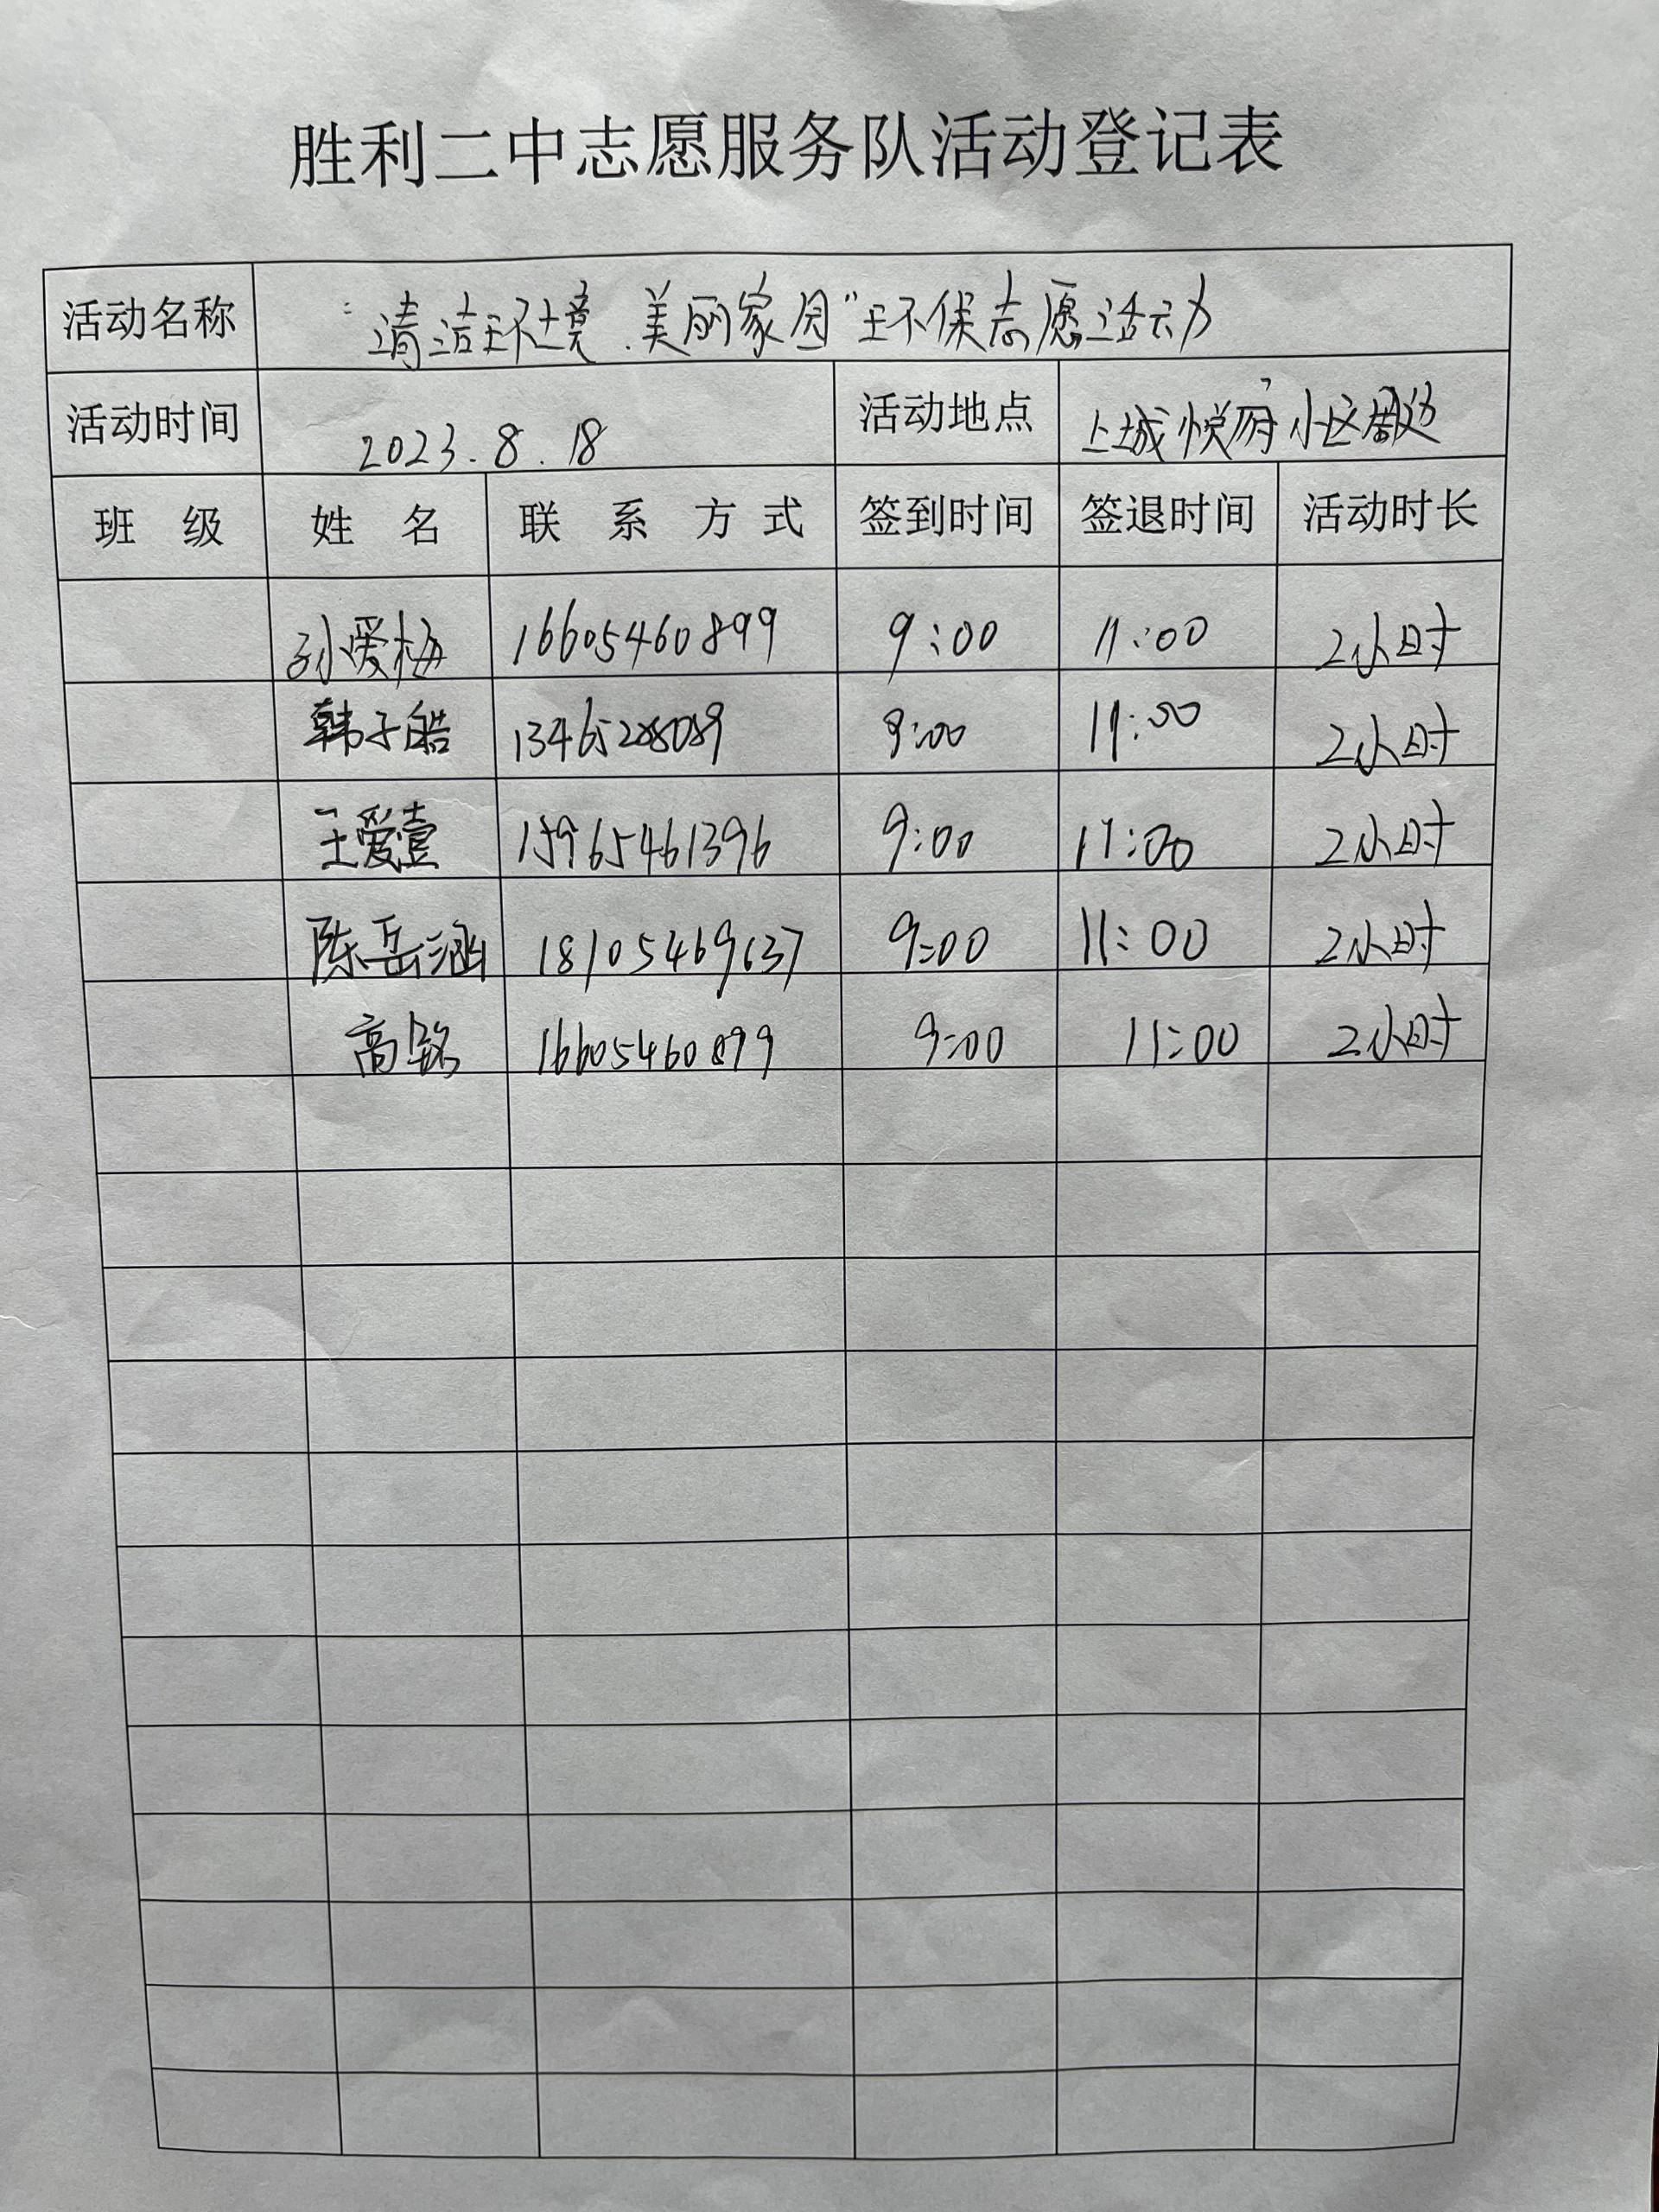 胜利二中志愿服务队活动登记表
活动名称 "清洁环境.美丽家园"环保志愿活动
活动时间 2023.8.18 活动地点 上城悦府小区周边
班 级 姓 名 联 系 方 式 签到时间 签退时间 活动时长
孙爱梅 16605460899 9:00 11:00 2小时
韩子皓 9:00 11:00 2小时
王爱壹 15965461396 9:00 11:00 2小时
陈岳涵 18105469637 9:00 11:00 2小时
高铭 16605460899 9:00 11:00 2小时